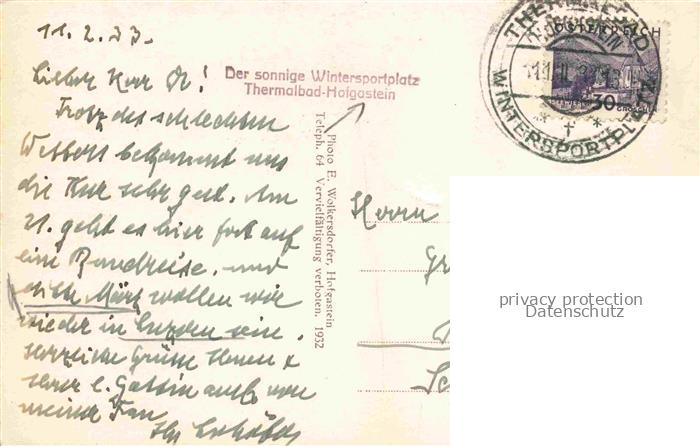 11.2.33.
Lieber Herr Dr!
Trotz des schlechten
Wetters bekommt uns
die Kur sehr gut. Am
21. geht es hier fort auf
eine Rundreise, und
März wollen wir
wieder in Luzern sein.
Herzliche Grüsse Ihnen &
Ihrer l. Gattin auch von
meiner Frau
Ihr
Der sonnige Wintersportplatz
Thermalbad-Hofgastein
Photo E. Wolkersdorfer, Hofgastein
Teleph. 64 Vervielfältigung verboten. 1932
THERMALBAD
HOFGASTEIN
WINTERSPORTPLATZ
ÖSTERREICH
30
Herrn
privacy protection
Datenschutz